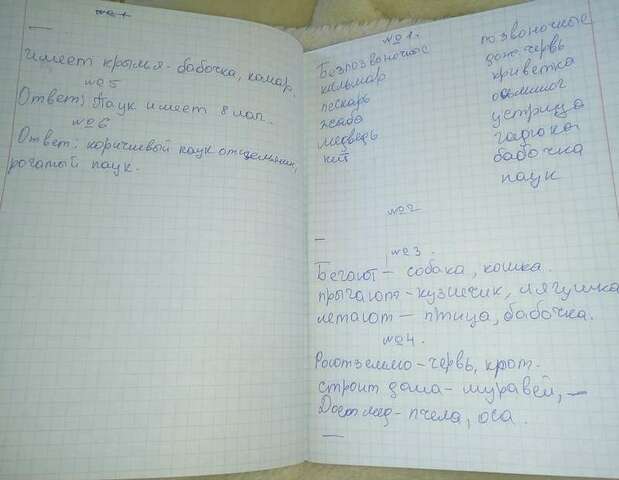 имеет крылья - бабочка, комар.
№5
Ответ: Паук имеет 8 лап.
№6
Ответ: коричневый паук отшельник,
рогатый паук.
№1.
Безпозвоночные
кальмар
пескарь
жаба
медведь
кит
позвоночные
дож. червь
криветка
осьминог
устрица
гадюка
бабочка
паук
№2
№3.
Бегают - собака, кошка.
прыгают - кузнечик, лягушка
летают - птица, бабочка.
№4.
Роют землю - червь, крот.
строит дома - муравей, —
Дает мед - пчела, оса.